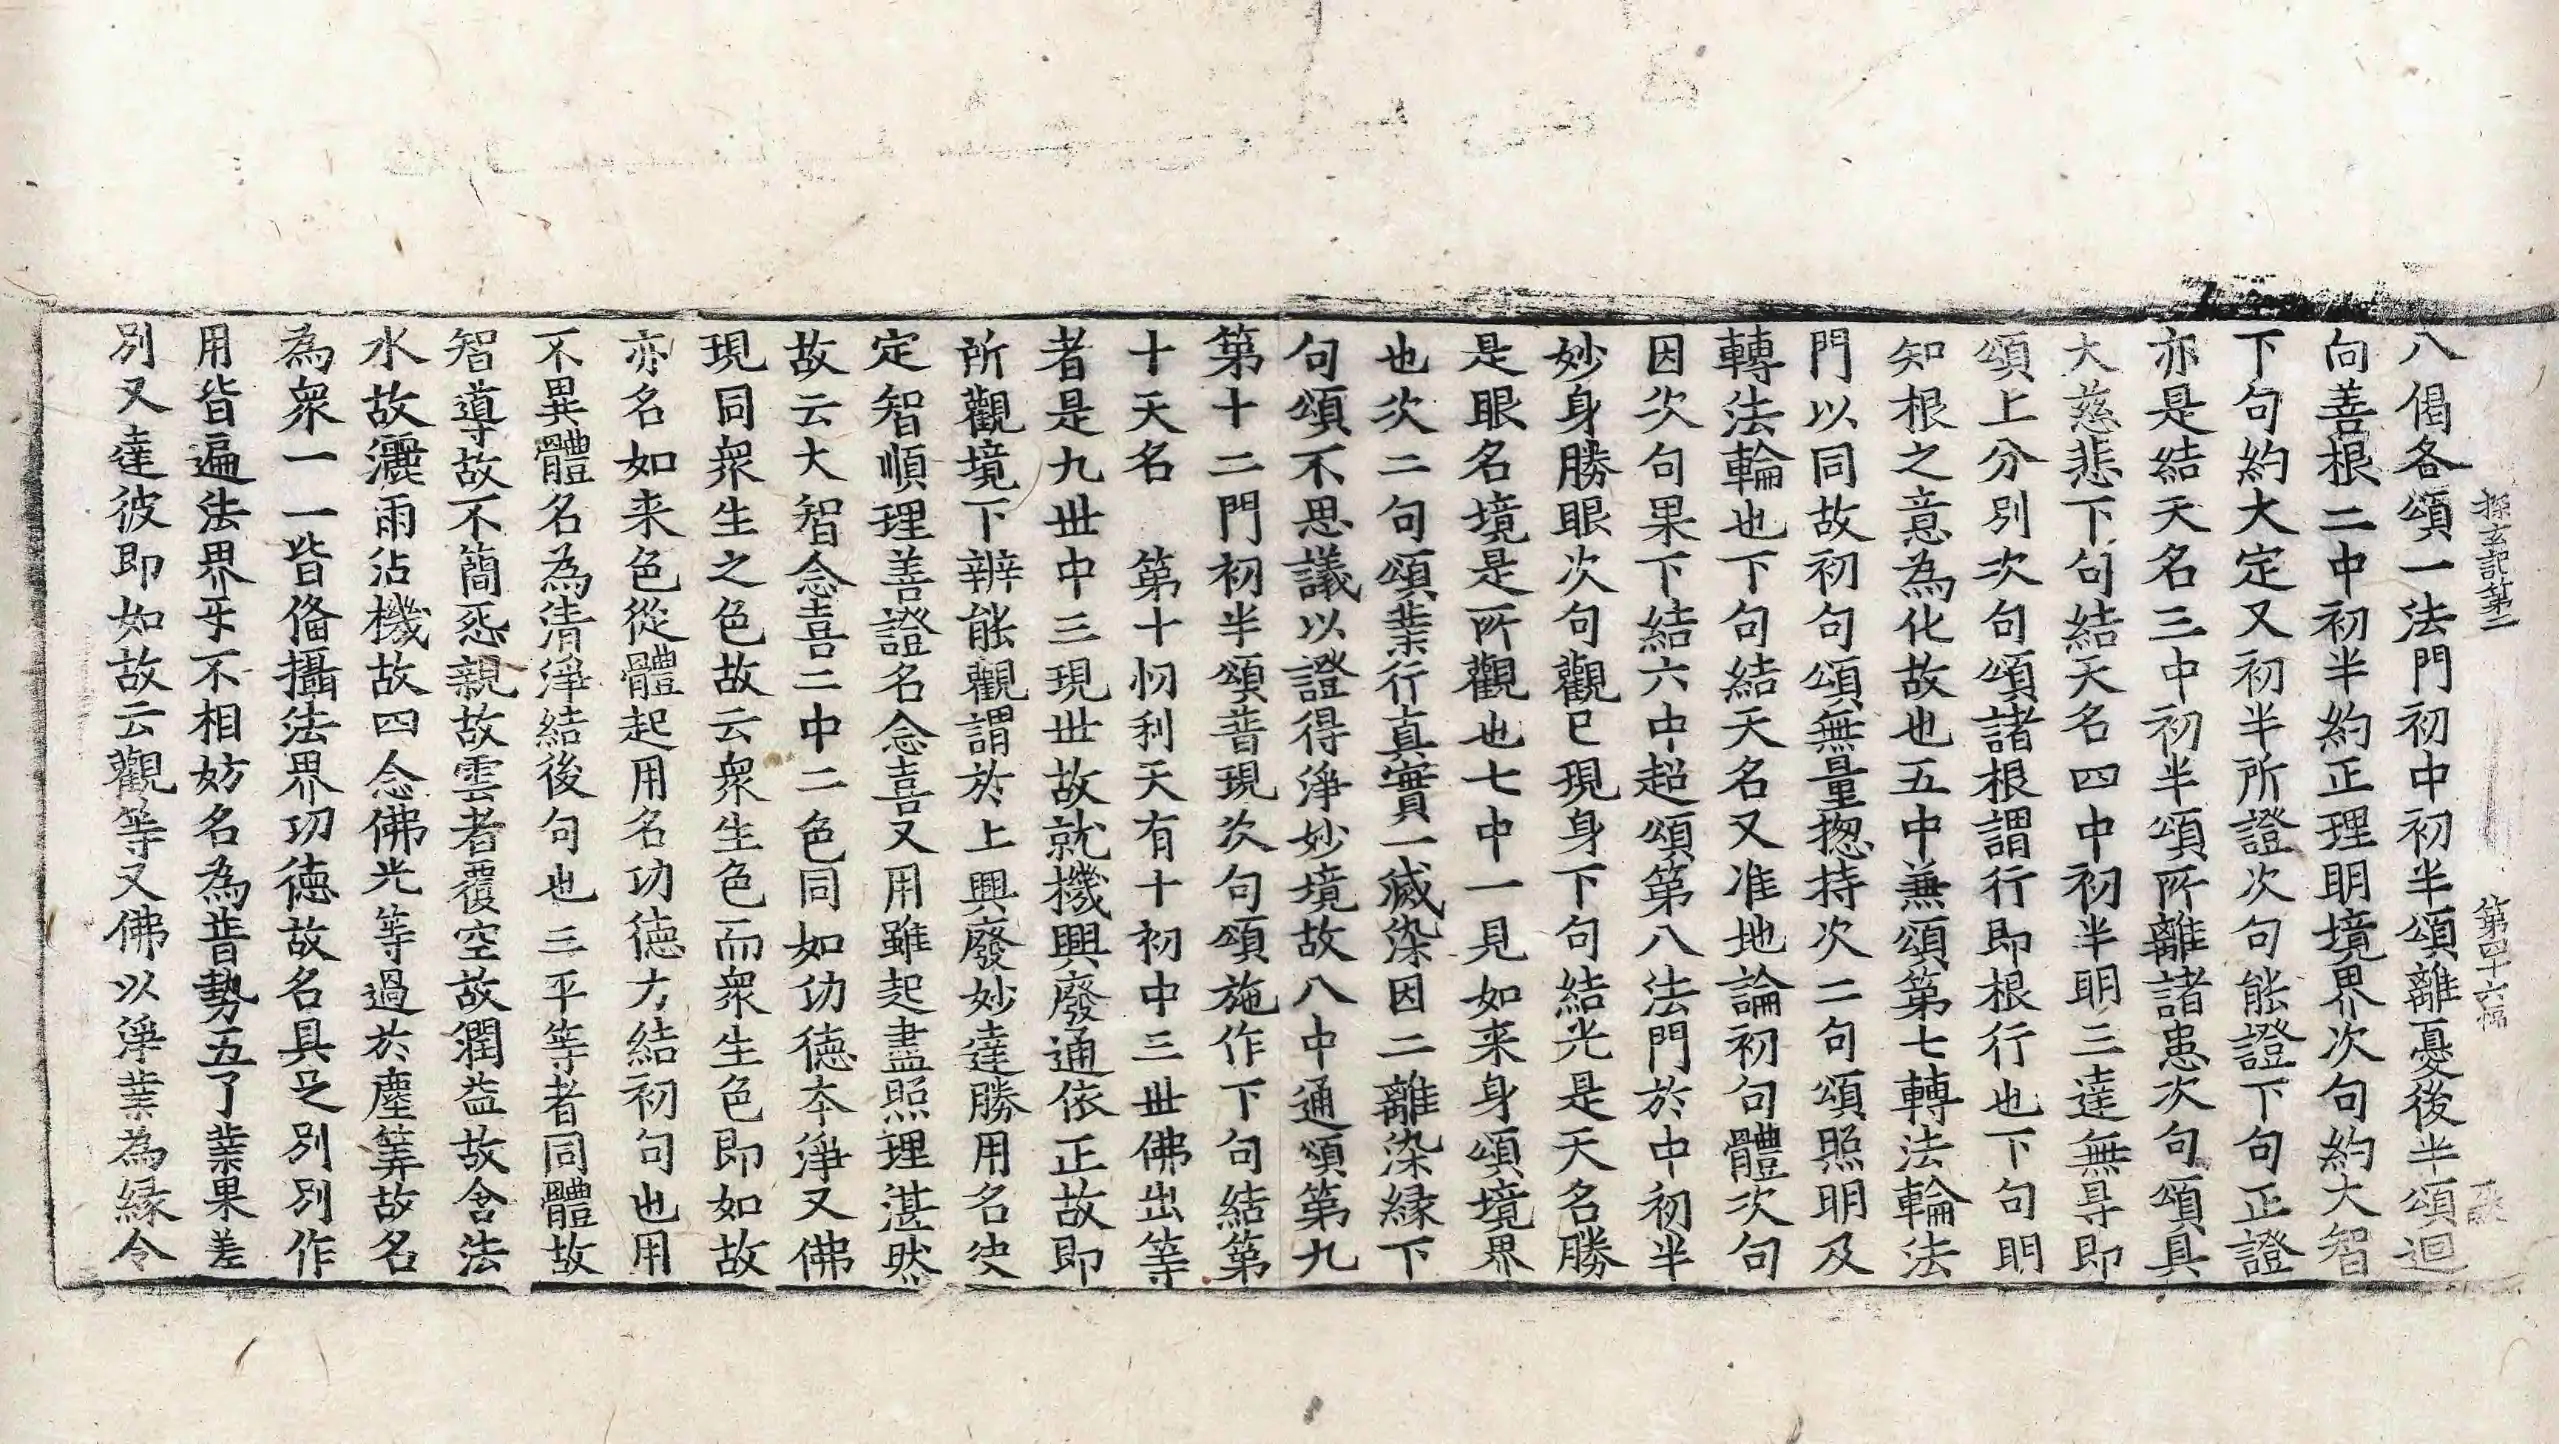 探玄記第二　第四十六幅
八偈各頌一法門初中初半頌離憂後半頌迴
向善根二中初半約正理明境界次句約大智
下句約大定又初半所證次句能證下句正證
亦是結天名三中初半頌所離諸患次句頌具
大慈悲下句結天名四中初半明三達無㝵即
頌上分別次句頌諸根謂行即根行也下句明
知根之意為化故也五中兼頌第七轉法輪法
門以同故初句頌無量揔持次二句頌照明及
轉法輪也下句結天名又准地論初句體次句
因次句果下結六中超頌第八法門於中初半
妙身勝眼次句觀已現身下句結光是天名勝
是眼名境是所觀也七中一見如来身頌境界
也次二句頌業行真實一滅染因二離染縁下
句頌不思議以證得淨妙境故八中通頌第九
第十二門初半頌普現次句頌施作下句結第
十天名　第十忉利天有十初中三世佛出等
者是九世中三現世故就機興廢通依正故即
所觀境下辨能觀謂於上興廢妙達勝用名決
定智順理善證名念喜又用雖起盡照理湛然
故云大智念喜二中二色同如功德本淨又佛
現同衆生之色故云衆生色而衆生色即如故
亦名如来色從體起用名功德力結初句也用
不異體名為清淨結後句也三平等者同體故
智導故不簡惡親故雲者覆空故潤益故含法
水故灑雨沾機故四念佛光等過於塵筭故名
為衆一一皆俻攝法界功德故名具足別別作
用皆遍法界𭃂不相妨名為普勢五了業果差
別又達彼即如故云觀等又佛以淨業為縁令